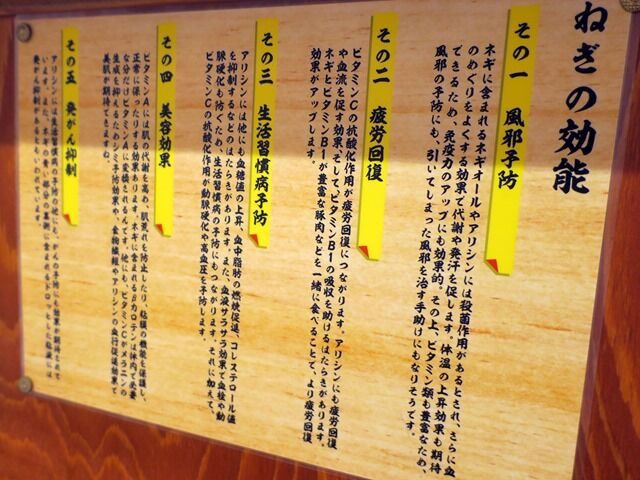 ねぎの効能
その一 風邪予防
ネギに含まれるネギオールやアリシンには殺菌作用があるとされ、さらに血
のめぐりをよくする効果で代謝や発汗を促します。体温の上昇効果も期待
できるため、免疫力のアップにも効果的。その上、ビタミン類も豊富なため、
風邪の予防にも、引いてしまった風邪を治す手助けにもなりそうです。
その二 疲労回復
ビタミンCの抗酸化作用が疲労回復につながります。アリシンにも疲労回復
や血流を促す効果、そして、ビタミンB1の吸収を助けるはたらきがあります。
ネギとビタミンB1が豊富な豚肉などを一緒に食べることで、より疲労回復
効果がアップします。
その三 生活習慣病予防
アリシンには他にも血糖値の上昇、血中脂肪の燃焼促進、コレステロール値
を抑制するなどのはたらきがあります。また、血液サラサラ効果で血栓や動
脈硬化も防ぐため、生活習慣病の予防にもつながります。それに加えて、
ビタミンCの抗酸化作用が動脈硬化や高血圧を予防します。
その四 美容効果
ビタミンAには肌の代謝を高め、肌荒れを防止したり、粘膜の機能を保護し、
正常に保ったりする効果あります。ネギに含まれるβカロテンは体内で必要
な分だけビタミンAに変換されるんです。他にも、ビタミンCがメラニンの
生成を抑えたりしてシミ予防効果や、食物繊維やアリシンの血行促進効果で
美肌が期待できますよね。
その五 発がん抑制
アリシンには生活習慣病の予防の他にも、がんの予防にも効果が期待されて
います。また、ネギの青い部分の裏側に含まれるドロッとした粘液には
発がん抑制があるともいわれています。